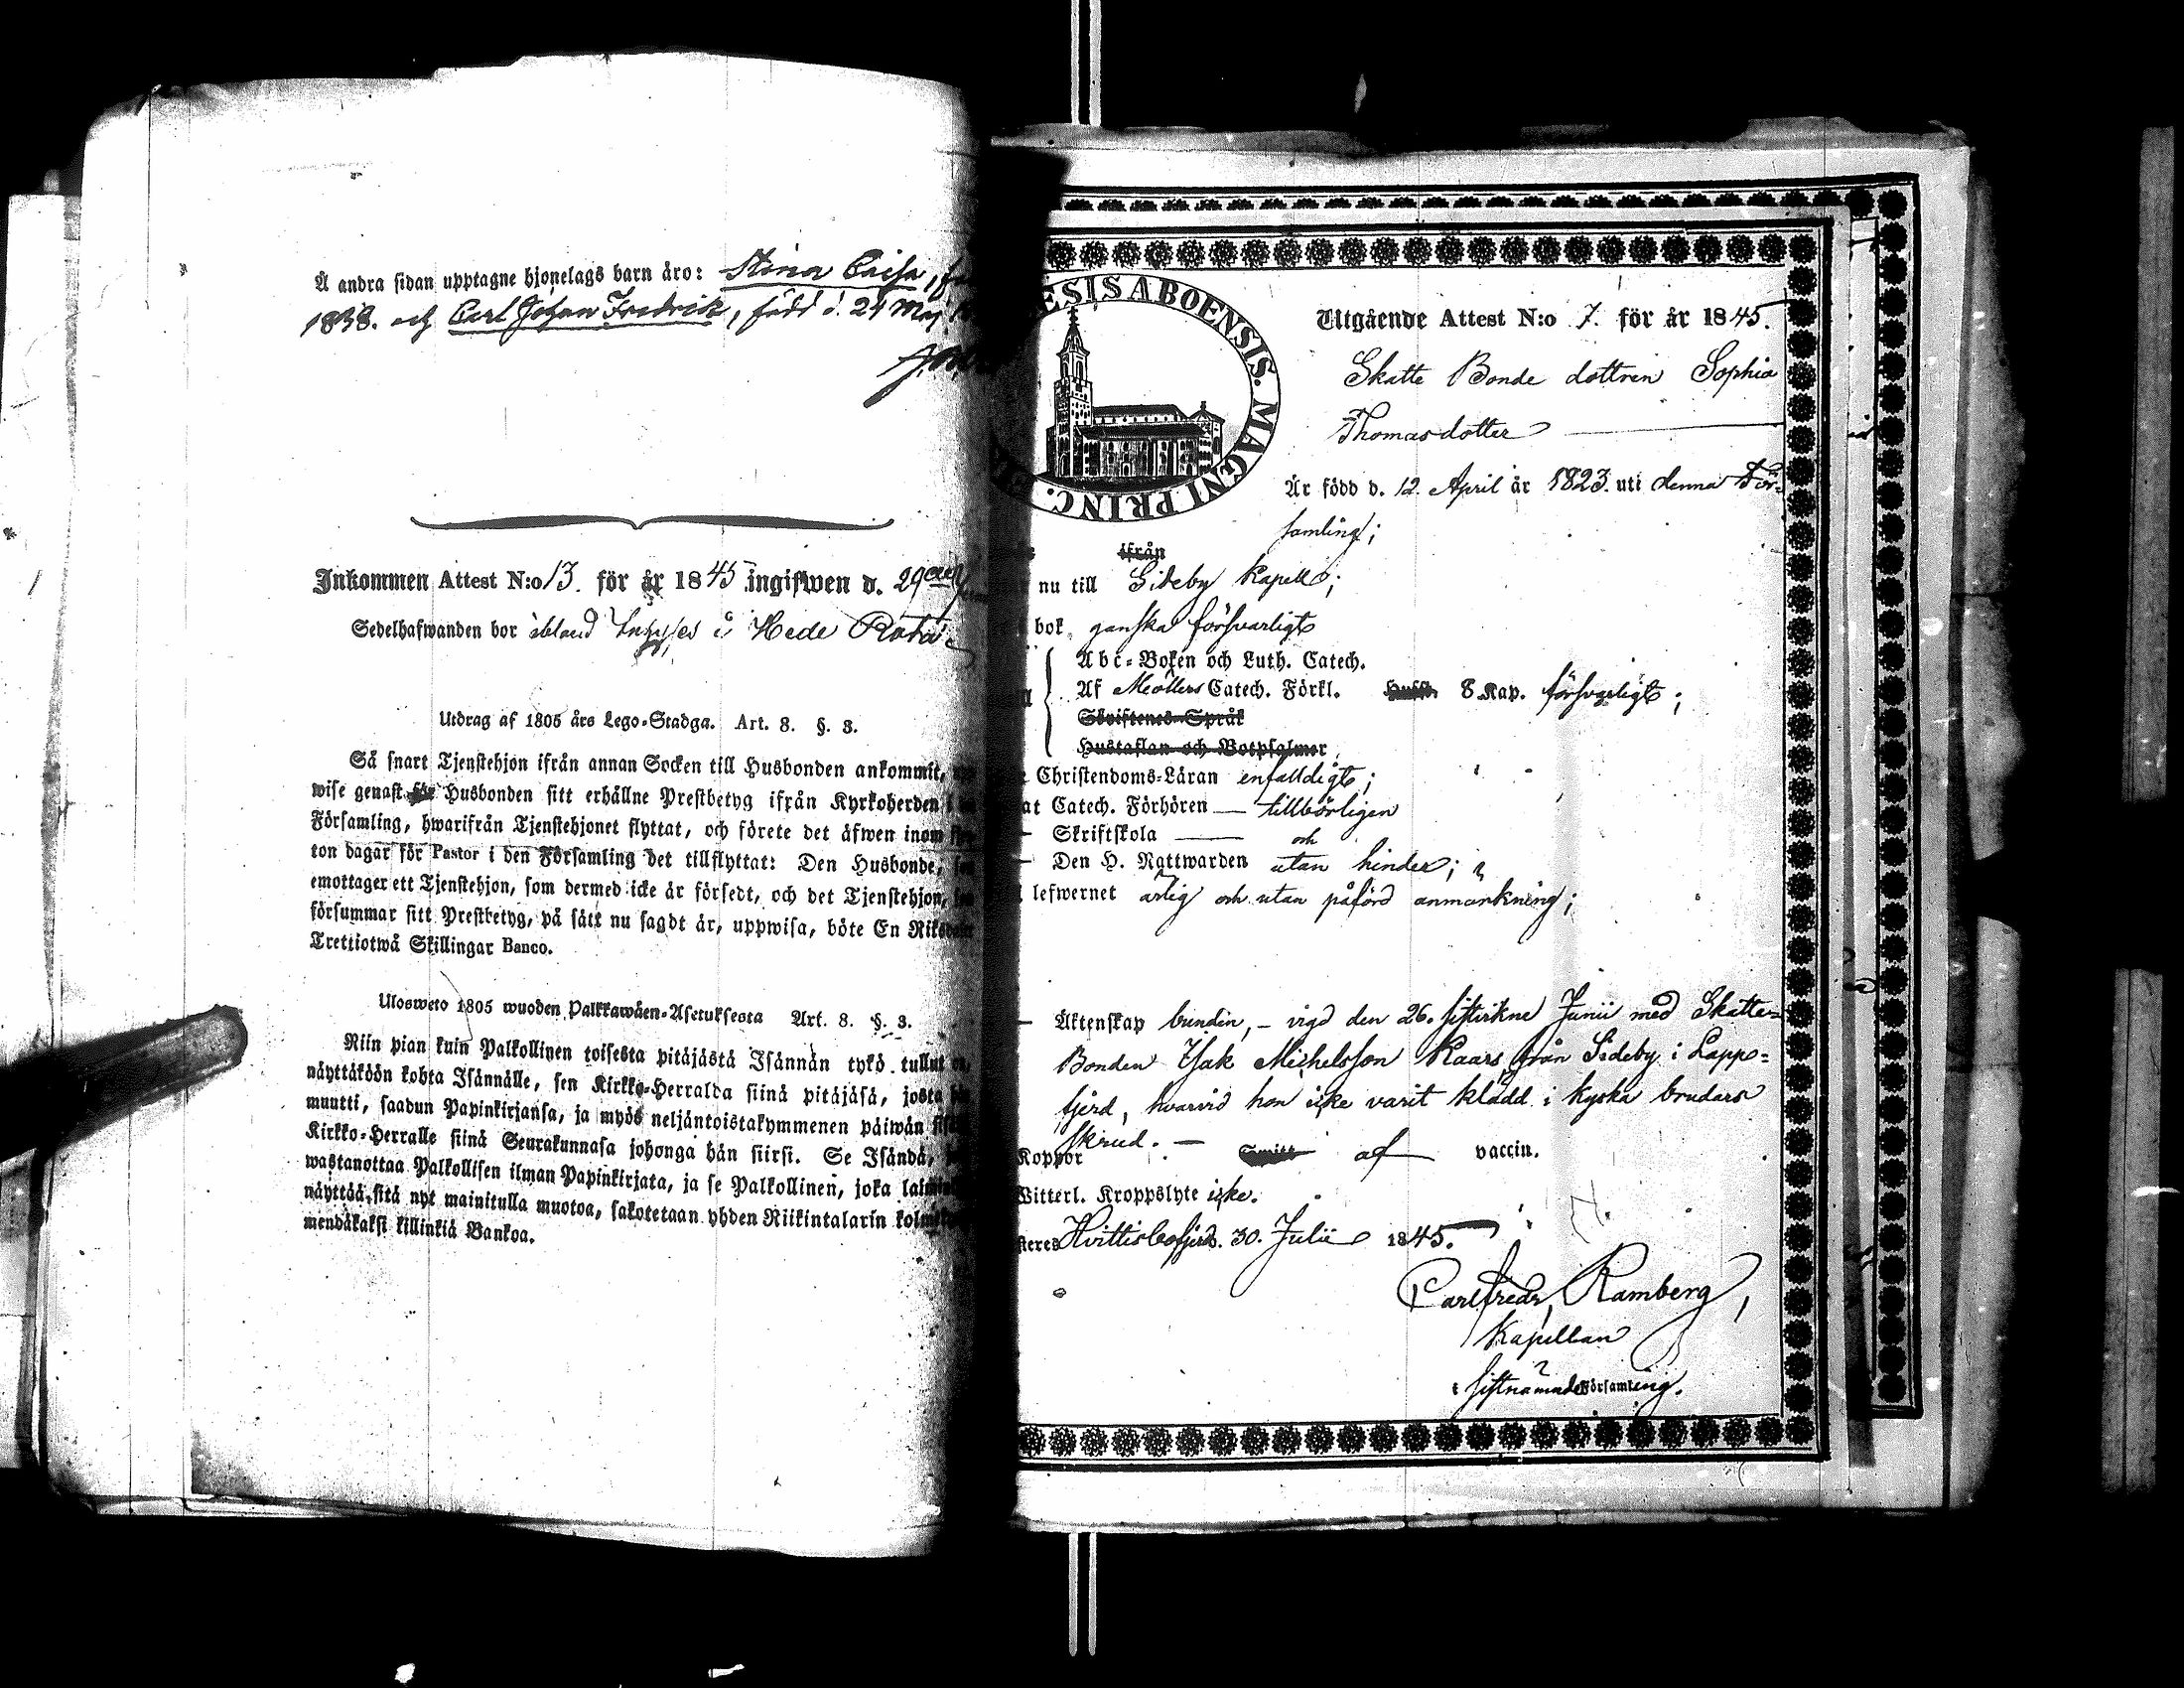 Å andra sidan upptagne hjonelags barn äro: Stina Caisa,
1838. och Carl Johan Fredrik, född d. 24 Maj
Inkommen Attest N:o 13. för år 1845 ingifwen d. 29
Sedelhafwanden bor ibland i Hede Rota
Utdrag af 1805 års Lego-Stadga. Art. 8. §. 3.
Så snart Tjenstehjon ifrån annan Socken till Husbonden ankommit,
wise genast för Husbonden sitt erhållne Prestbetyg ifrån Kyrkoherden
Församling, hwarifrån Tjenstehjonet flyttat, och förete det äfwen inom
ton dagar för Pastor i den Församling det tillflyttat: Den Husbonde,
emottager ett Tjenstehjon, som dermed icke är försedt, och det Tjenstehjon,
försummar sitt Prestbetyg, på sätt nu sagdt är, uppwisa, böte En Riksdaler
Trettiotwå Skillingar Banco.
Ulosweto 1805 wuoden Palkkawäen-Asetuksesta Art. 8. §. 3.
Niin pian kuin Palkollinen toisesta pitäjästä Isännän tykö tullut on,
näyttäköön kohta Isännälle, sen Kirkko-Herralda siinä pitäjäsä, josta
muutti, saadun Papinkirjansa, ja myös neljäntoistakymmenen päiwän
Kirkko-Herralle siinä Seurakunnasa johonga hän siirsi. Se Isändä,
wastanottaa Palkollisen ilman Papinkirjata, ja se Palkollinen, joka
näyttää sitä nyt mainitulla muotoa, sakotetaan yhden Riikintalarin
mendäkaksi killinkiä Bankoa.
ESIS ABOENSIS. MAGNI PRINC.
Utgående Attest N:o 7. för år 1845.
Skatte Bonde dottren Sophia
Thomasdotter
Är född d. 12. April år 1823. uti denna För-
samling;
ifrån
nu till Sideby Kapell;
bok ganska försvarligt
Abc-Boken och Luth. Catech.
Af Möllers Catech. Förkl. Hufst. 8 Kap. försvarligt;
Skriftenes Språk
Hustaflan och Botpsalmer
Christendoms-Läran enfaldigt;
at Catech. Förhören — tillbörligen
— Skriftskola — och
— Den H. Nattwarden utan hinder;
lefwernet ärlig och utan påförd anmärkning;
— Äktenskap bunden, – vigd den 26. sistvikne Junii med Skatte-
Bonden Isak Michelsson Kaars, från Sideby i Lappo-
fjerd, hvarvid hon icke varit klädd i kyska brudars
skrud. —
Koppor af vaccin.
Witterl. Kroppslyte icke.
steres Hvittisbofjerd. 30. Julii 1845.
Carl Fredr. Ramberg,
Kapellan
i sistnämnde Församling.